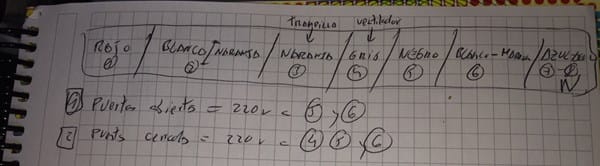 trampilla ventilador
ROJO / BLANCO/NARANJA / NARANJA / GRIS / NEGRO / BLANCO-MARRON / AZUL
1 2 3 4 5 6 7 N
1 Puerta abierta = 220v = 5 y 6
2 Puerta cerrada = 220v = 4 5 y 6